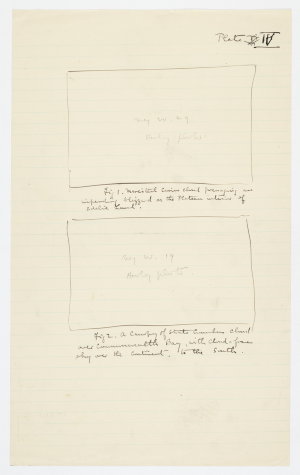 Plate IV
Neg W. 29
Hurley photo.
Fig 1. Cirrus cloud presaging an
impending blizzard on the Plateau interior of
Adelie Land.
Neg W. 19
Hurley photo.
Fig 2. A Canopy of Strato Cumulus Cloud
over Commonwealth Bay, with cloud-free
sky over the Continent, to the South.